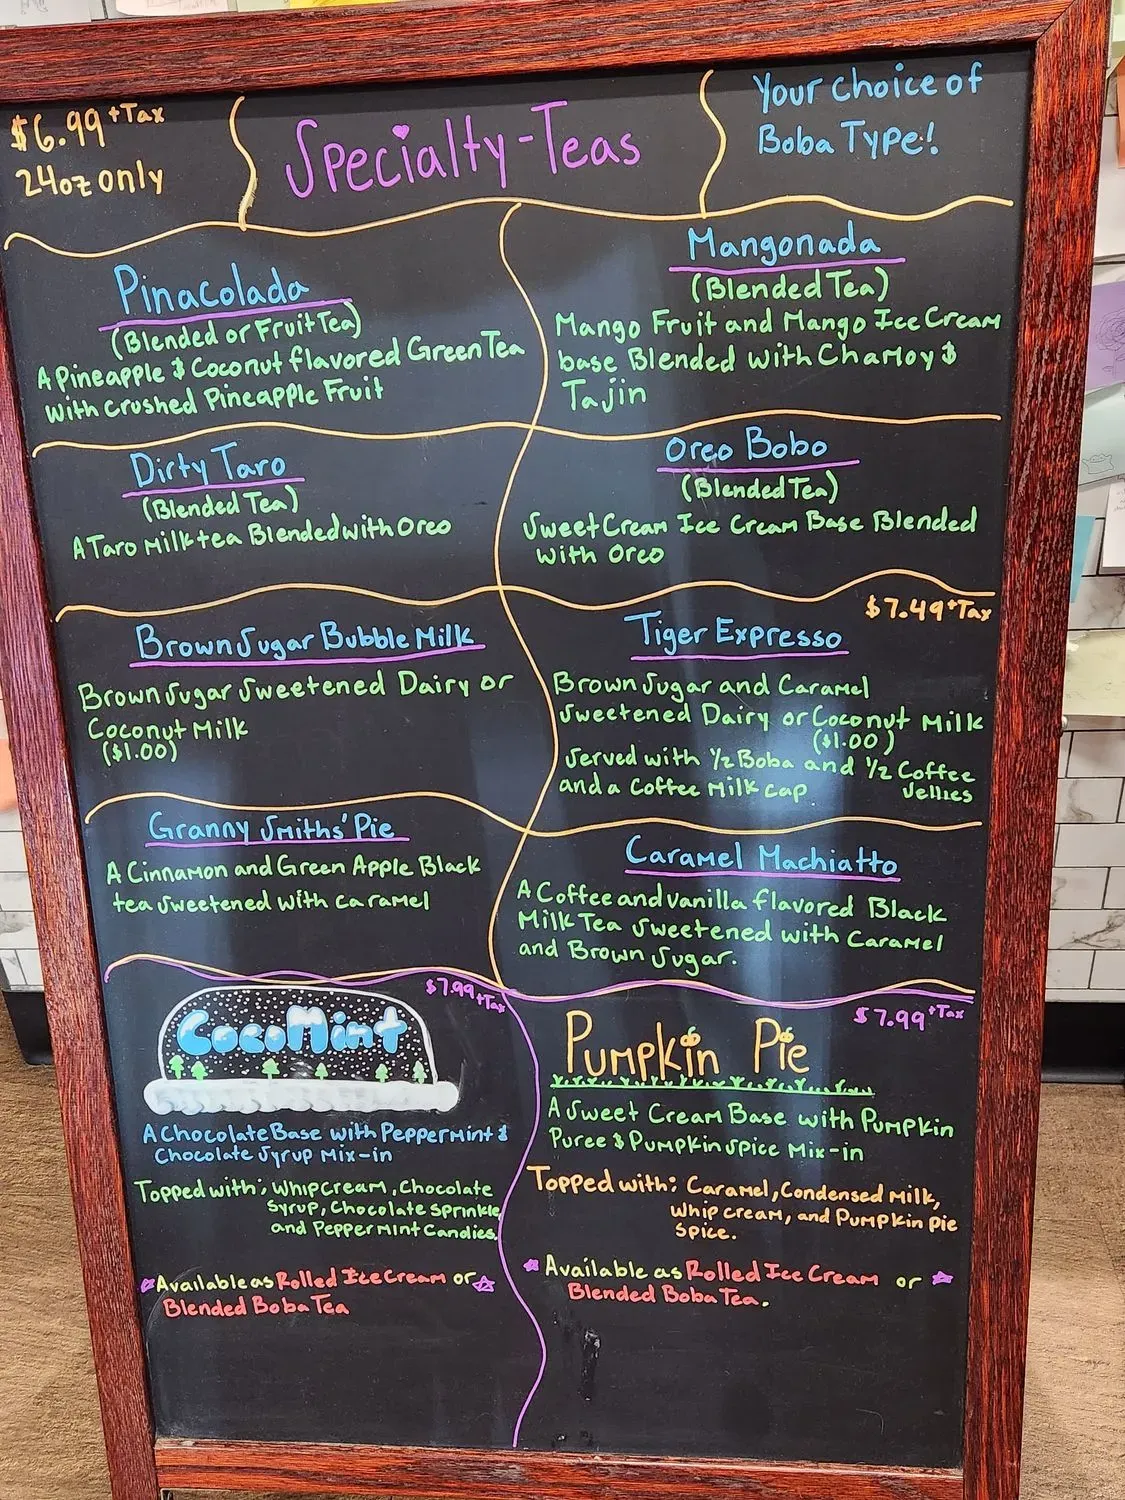 $6.99 +Tax
24oz only
Specialty-Teas
Your choice of
Boba Type!
Pinacolada
(Blended or Fruit Tea)
A Pineapple & Coconut flavored Green Tea
with crushed Pineapple Fruit
Mangonada
(Blended Tea)
Mango Fruit and Mango Ice Cream
base Blended with Chamoy &
Tajin
Dirty Taro
(Blended Tea)
A Taro Milk tea Blended with Oreo
Oreo Bobo
(Blended Tea)
Sweet Cream Ice Cream Base Blended
with Oreo
Brown Sugar Bubble Milk
Brown Sugar Sweetened Dairy or
Coconut Milk
($1.00)
$7.49 +Tax
Tiger Expresso
Brown Sugar and Caramel
Sweetened Dairy or Coconut Milk
($1.00)
Served with 1/2 Boba and 1/2 Coffee
Jellies
and a Coffee Milk cap
Granny Smiths' Pie
A Cinnamon and Green Apple Black
tea sweetened with caramel
Caramel Machiatto
A Coffee and vanilla flavored Black
Milk Tea sweetened with Caramel
and Brown Sugar.
$7.99 +Tax
CocoMint
A Chocolate Base with Peppermint &
Chocolate Syrup Mix-in
Topped with; Whip Cream, Chocolate
Syrup, Chocolate sprinkle
and Peppermint Candies.
Available as Rolled Ice Cream or
Blended Boba Tea
$7.99 +Tax
Pumpkin Pie
A Sweet Cream Base with Pumpkin
Puree & Pumpkin Spice Mix-in
Topped with: Caramel, Condensed Milk,
Whip cream, and Pumpkin Pie
Spice.
Available as Rolled Ice Cream or
Blended Boba Tea.